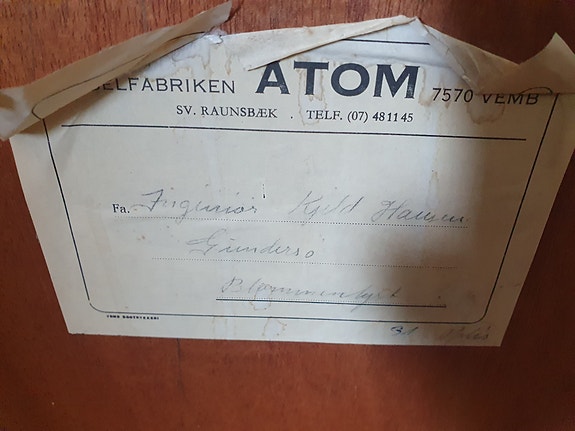 ELFABRIKEN ATOM 7570 VEMB
SV. RAUNSBÆK . TELF. (07) 4811 45
Fa. Ingeniør Kjeld Hansen
Gundersø
Blommenslyst
VEMB BOGTRYKKERI
31